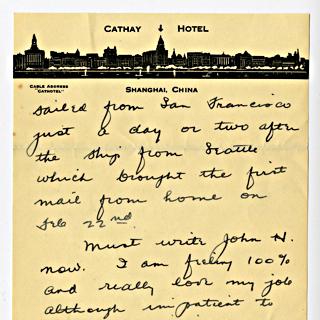 CATHAY HOTEL
CABLE ADDRESS
"CATHOTEL"
SHANGHAI, CHINA
sailed from San Francisco
just a day or two after
the ship from Seattle
which brought the first
mail from home on
Feb 22nd.
Must write John H.
now. I am feeling 100%
and really love my job
although impatient to